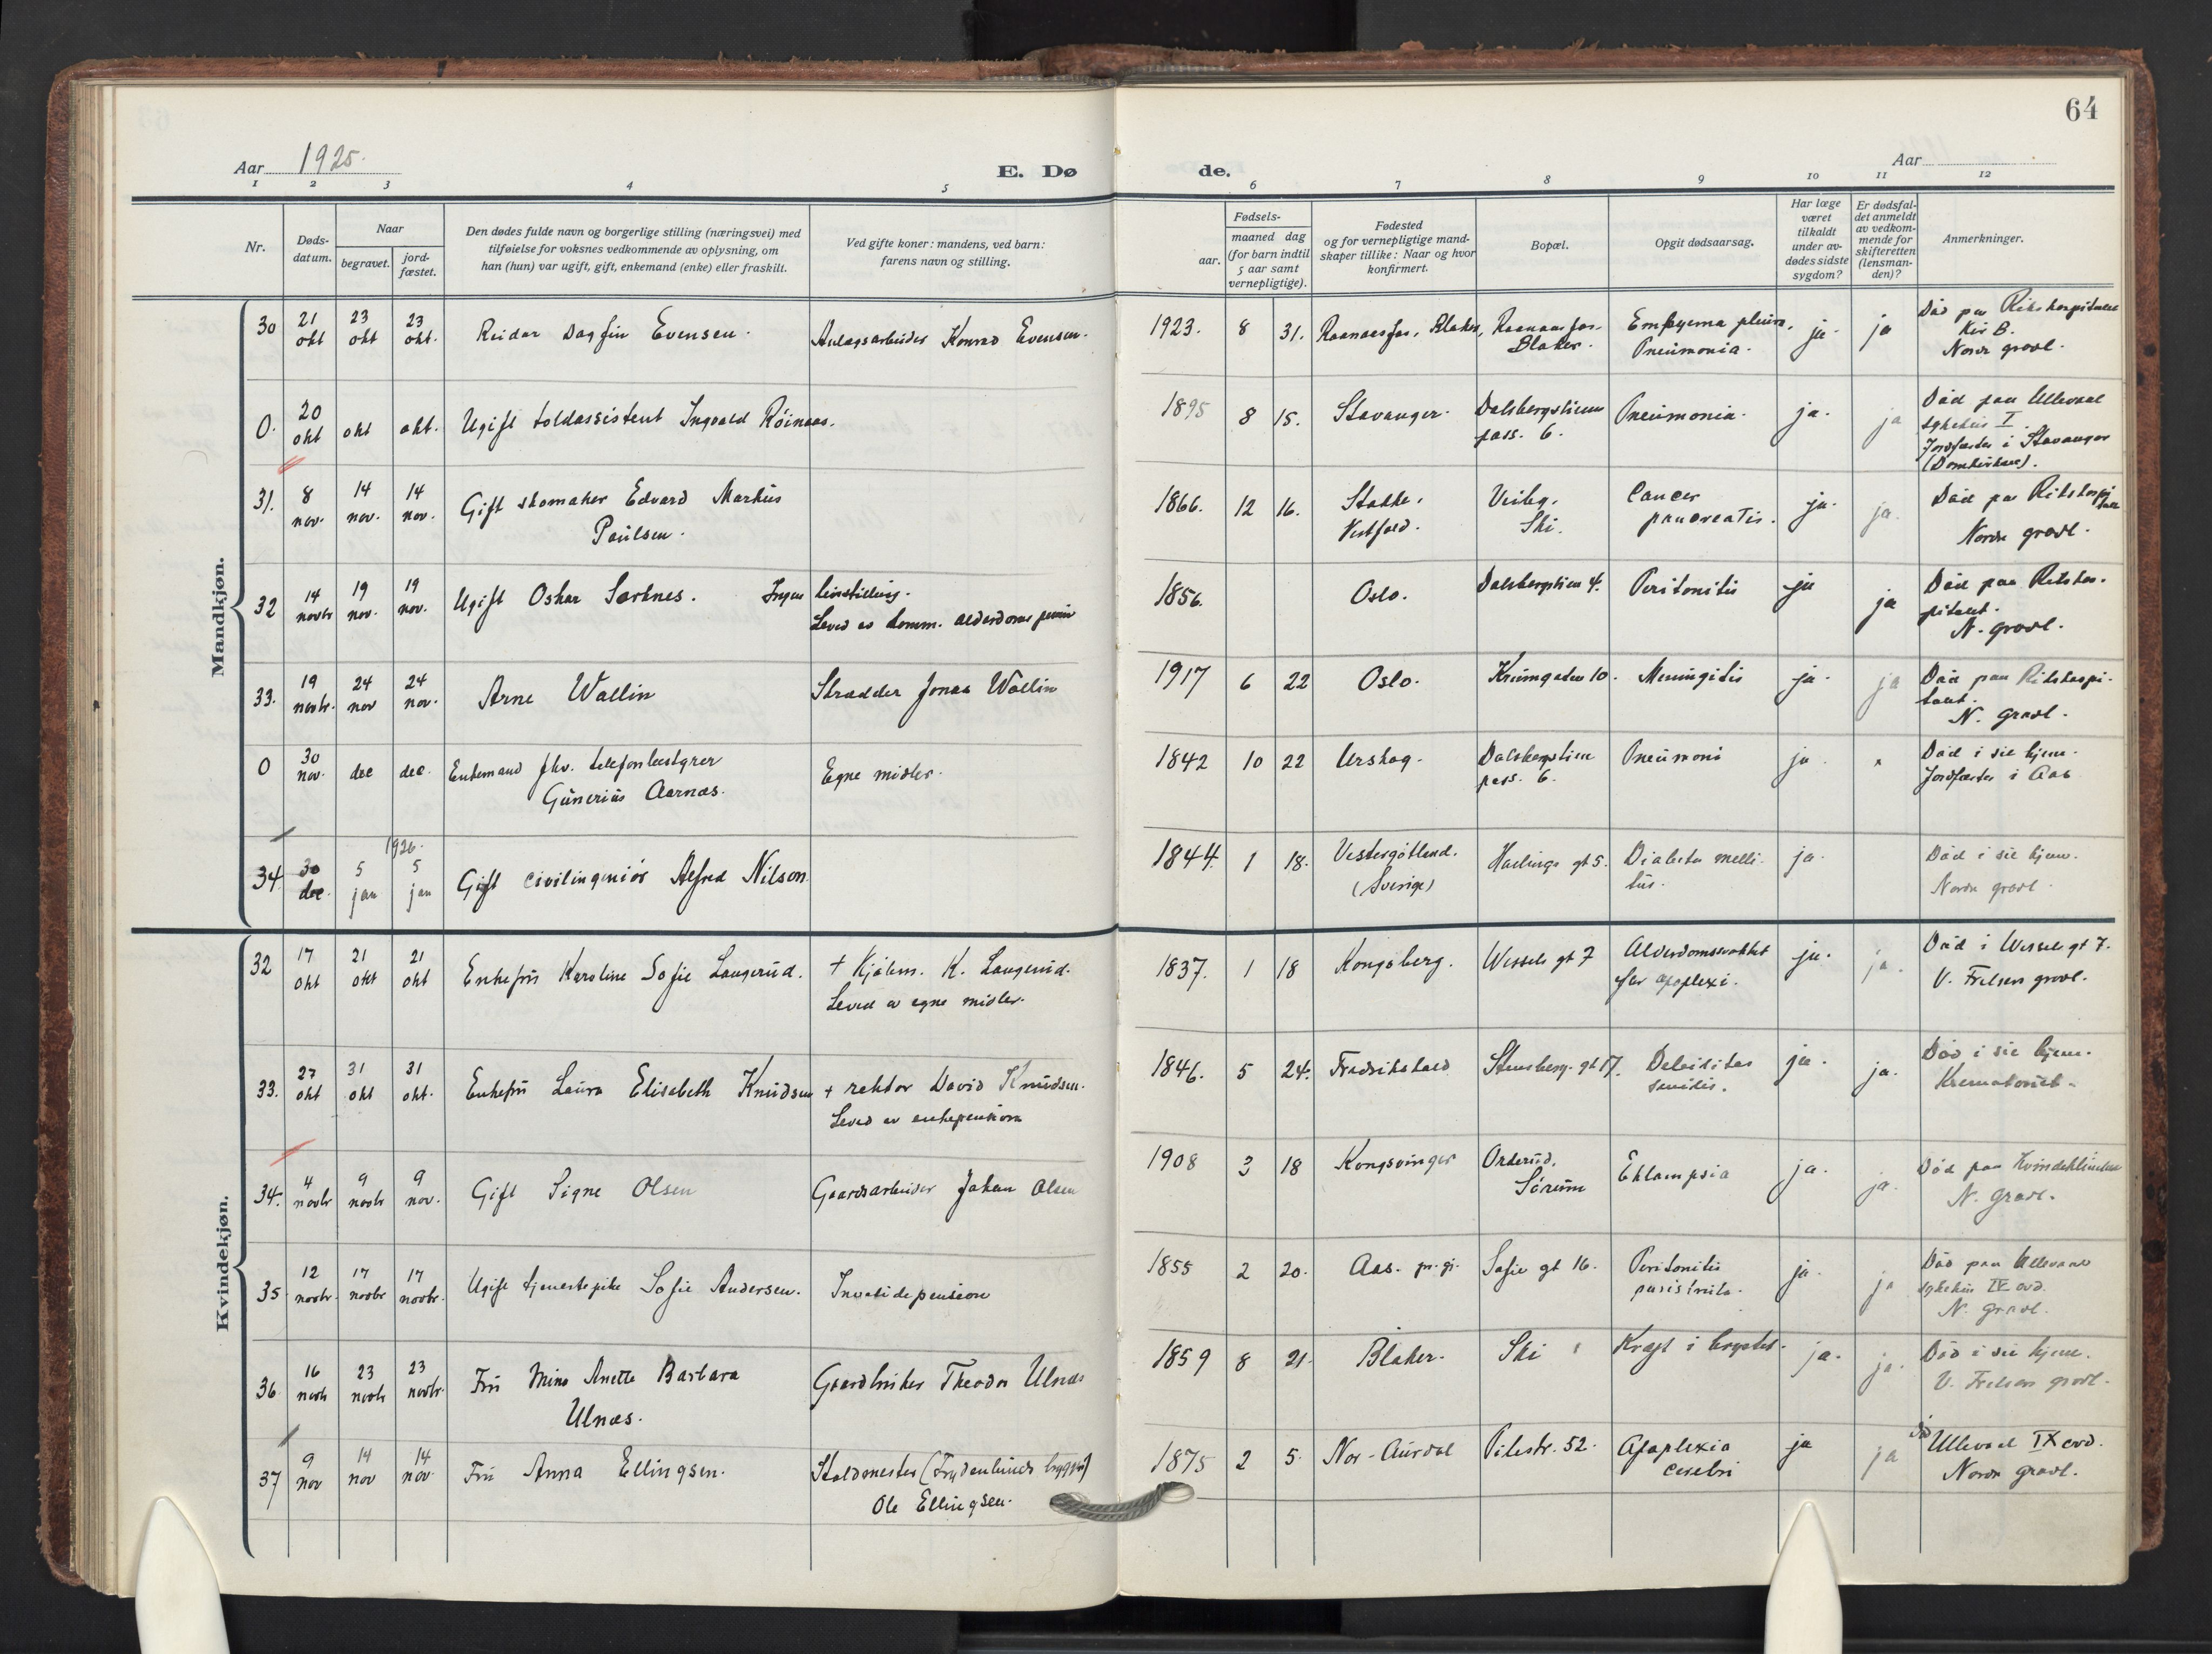 64
Aar 1925.
E. Dø
de.
Aar
1 2 3 4 5 6 7 8 9 10 11 12
Nr.
Døds-
datum.
Naar
begravet.
jord-
fæstet.
Den dødes fulde navn og borgerlige stilling (næringsvei) med
tilføielse for voksnes vedkommende av oplysning, om
han (hun) var ugift, gift, enkemand (enke) eller fraskilt.
Ved gifte koner: mandens, ved barn:
farens navn og stilling.
Fødsels-
aar.
maaned dag
(for barn indtil
5 aar samt
vernepligtige).
Fødested
og for vernepligtige mand-
skaper tillike: Naar og hvor
konfirmert.
Bopæl.
Opgit dødsaarsag.
Har læge
været
tilkaldt
under av-
dødes sidste
sygdom?
Er dødsfal-
det anmeldt
av vedkom-
mende for
skifteretten
(lensman-
den)?
Anmerkninger.
Mandkjøn.
30 21 okt 23 okt 23 okt. Reidar Dagfin Evensen. Anlægsarbeider Konrad Evensen. 1923. 8 31. Raanaasfos, Blaker, Raanaasfos. Empyema pleura, ja. ja Død paa Rikshospitalet
Blaker. Pneumonia. Kir B.
Nordre gravl.
0. 20 okt okt okt. Ugift toldassistent Ingvald Røinaas. 1895 8 15. Stavanger. Dalsbergstien Pneumonia. ja. ja Død paa Ullevaal
pass. 6. sykehus I.
Jordfæstes i Stavanger
(Domkirken).
31. 8 nov. 14 nov. 14 nov. Gift skomaker Edvard Markus 1866. 12 16. Stokke. Ski. Cancer ja. ja. Død paa Rikshospitalet
Paulsen. Vestfold. pancreatis. Nordre gravl.
32 14 novbr 19 nov. 19 nov. Ugift Oskar Sørknes. Ingen livsstilling. 1856. Oslo. Dalsbergstien 4. Peritonitis ja ja Død paa Rikshos-
Leved av komm. alderdoms pension pitalet.
N. gravl.
33. 19 novbr. 24 nov 24 nov. Arne Wallin Skrædder Jonas Wallin 1917 6 22 Oslo. Krumgaten 10. Meningitis ja. ja Død paa Rikshospi-
talet.
N. gravl.
0 30 nov. dec dec. Enkemand fhv. telefonbestyrer Egne midler. 1842 10 22 Urskog. Dalsbergstien Pneumoni ja. x Død i sit hjem.
Gunerius Aarnæs. pass. 6. Jordfæstes i Aas
1926.
34. 30 dec. 5 jan 5 jan Gift civilingeniør Alfred Nilson 1844. 1 18. Vestergötland. gt 5. Diabetes melli- ja. Død i sit hjem.
(Sverige) tus. Nordre gravl.
Kvindekjøn.
32 17 okt 21 okt 21 okt Enkefru Karoline Sofie Langerud. + Kjølem. K. Langerud. 1837. 1 18 Kongsberg. Wessels gt 7 Alderdomssvakhet ja. ja. Død i Wessels gt 7.
Leved av egne midler. før apoplexi. V. Frelsers gravl.
33. 27 okt 31 okt 31 okt. Enkefru Laura Elisabeth Knudsen + rektor David Knudsen. 1846. 5 24. Fredrikshald Stensberg. gt 17. Debilitas ja. ja. Død i sit hjem.
Leved av enkepension senilis. Krematoriet.
34. 4 novbr 9 novbr 9 nov. Gift Signe Olsen Gaardsarbeider Johan Olsen 1908 3 18 Kongsvinger Orderud, Eklampsia ja. ja. Død paa Kvindeklinikken
Sørum N. gravl.
35 12 novbr. 17 novbr 17 novbr. Ugift tjenestepike Sofie Andersen. Invalidepension 1855 2 20. Aas. pr. gj. Sofie gt 16. Peritonitis ja. ja Død paa Ullevaal
sykehus IV avd.
N. gravl.
36. 16 novbr 23 novbr 23 novbr. Fru Mina Anette Barbara Gaardbruker Theodor Ulnæs 1859 8 21. Blaker. Ski Kræft i brystet. ja. ja. Død i sit hjem.
Ulnæs. V. Frelsers gravl.
37 9 nov 14 nov 14 nov. Fru Anna Ellingsen. Staldmester (Frydenlunds bryggeri) 1875 2 5. Nor-Aurdal Pilestr. 52. Apoplexia ja ja Ullevaal IX avd.
Ole Ellingsen. cerebri Nordre gravl.